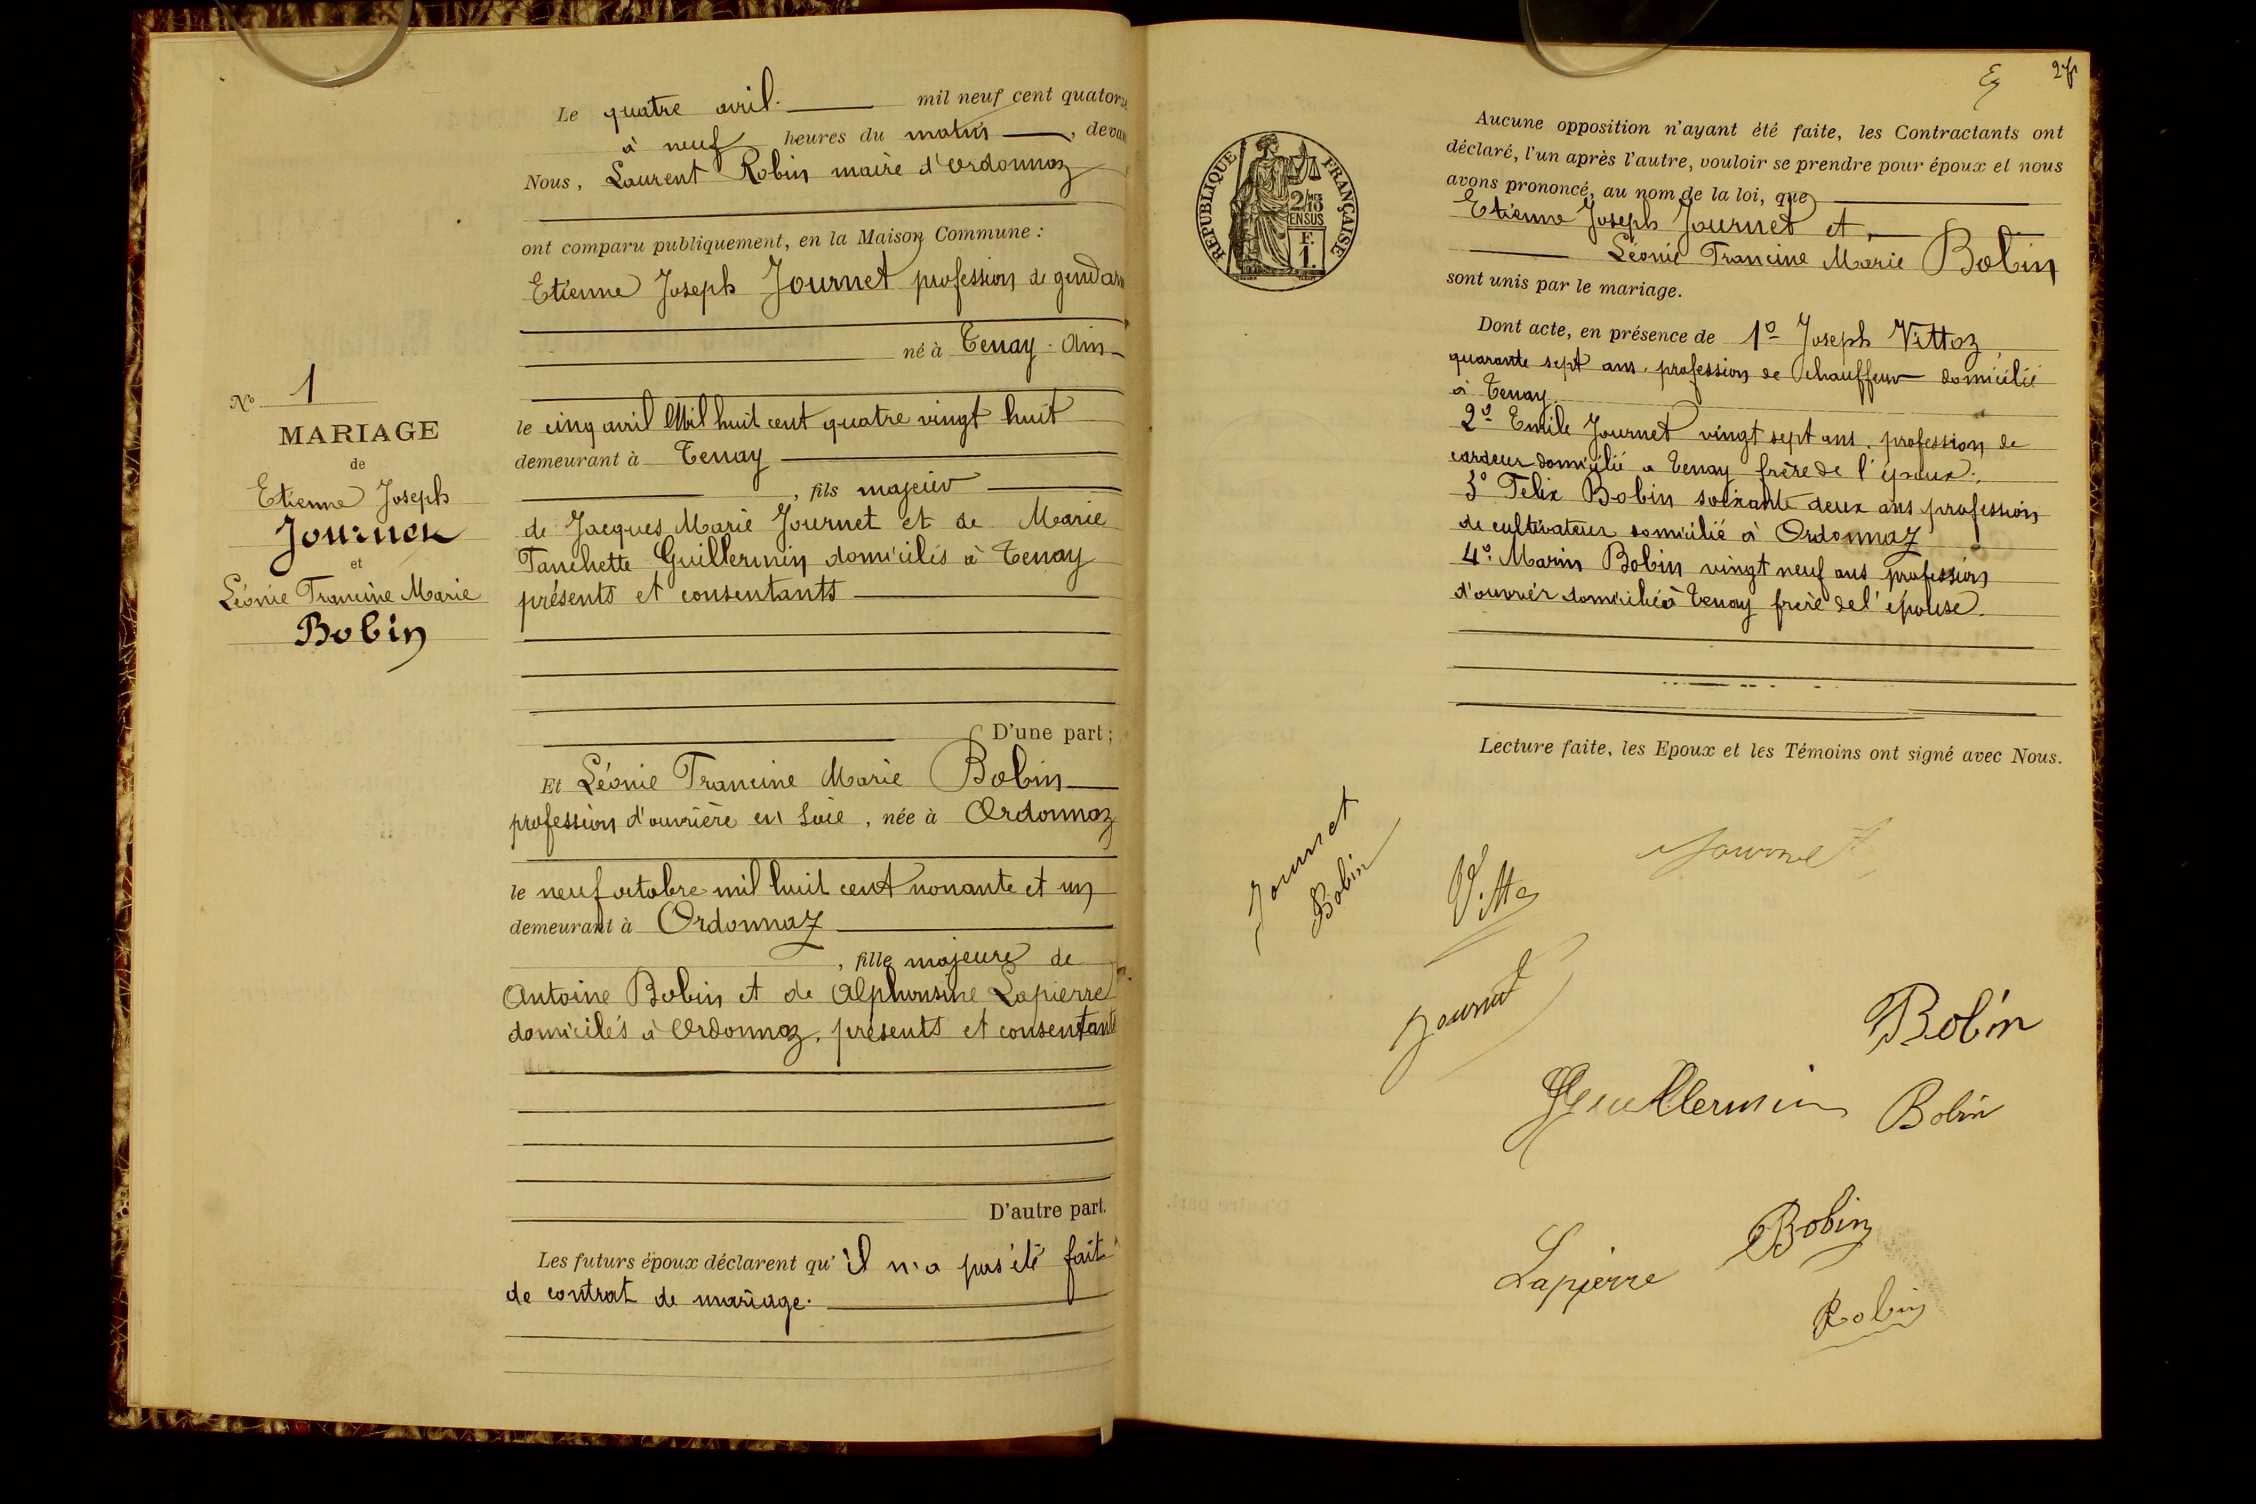 Le quatre avril. mil neuf cent quatorze
à neuf heures du matin, devant
Nous, Laurent Robin maire d'Ordonnaz
ont comparu publiquement, en la Maison Commune :
Etienne Joseph Journet profession de gendarm
né à Tenay - Ain
le cinq avril Mil huit cent quatre vingt huit
demeurant à Tenay
, fils majeur
de Jacques Marie Journet et de Marie
Fanchette Guillermin domiciliés à Tenay
présents et consentants
D'une part ;
Et Léonie Francine Marie Bobin
profession d'ouvrière en soie, née à Ordonnaz
le neuf octobre mil huit cent nonante et un
demeurant à Ordonnaz
, fille majeure de
Antoine Bobin et de Alphonsine Lapierre
domiciliés à Ordonnaz, présents et consentants
D'autre part.
Les futurs époux déclarent qu'il n'a pas été fait
de contrat de mariage.
No 1
MARIAGE
de
Etienne Joseph
Journet
et
Léonie Francine Marie
Bobin
REPUBLIQUE FRANÇAISE
2/10 MES
EN SUS
F.
1.
Aucune opposition n'ayant été faite, les Contractants ont
déclaré, l'un après l'autre, vouloir se prendre pour époux et nous
avons prononcé, au nom de la loi, que
Etienne Joseph Journet et
Léonie Francine Marie Bobin
sont unis par le mariage.
Dont acte, en présence de 1o Joseph Vittoz
quarante sept ans. profession de chauffeur domicilié
à Tenay
2o Emile Journet vingt sept ans. profession de
cardeur domicilié a Tenay frère de l'époux.
3o Felix Bobin soixante deux ans profession
de cultivateur domicilié à Ordonnaz
4o. Marin Bobin vingt neuf ans profession
d'ouvrier domicilié à Tenay frère de l'épouse.
Lecture faite, les Epoux et les Témoins ont signé avec Nous.
Journet
Bobin
Vittoz
Journet
Journet
Bobin
Guillermin
Bobin
Bobin
Lapierre
Robin